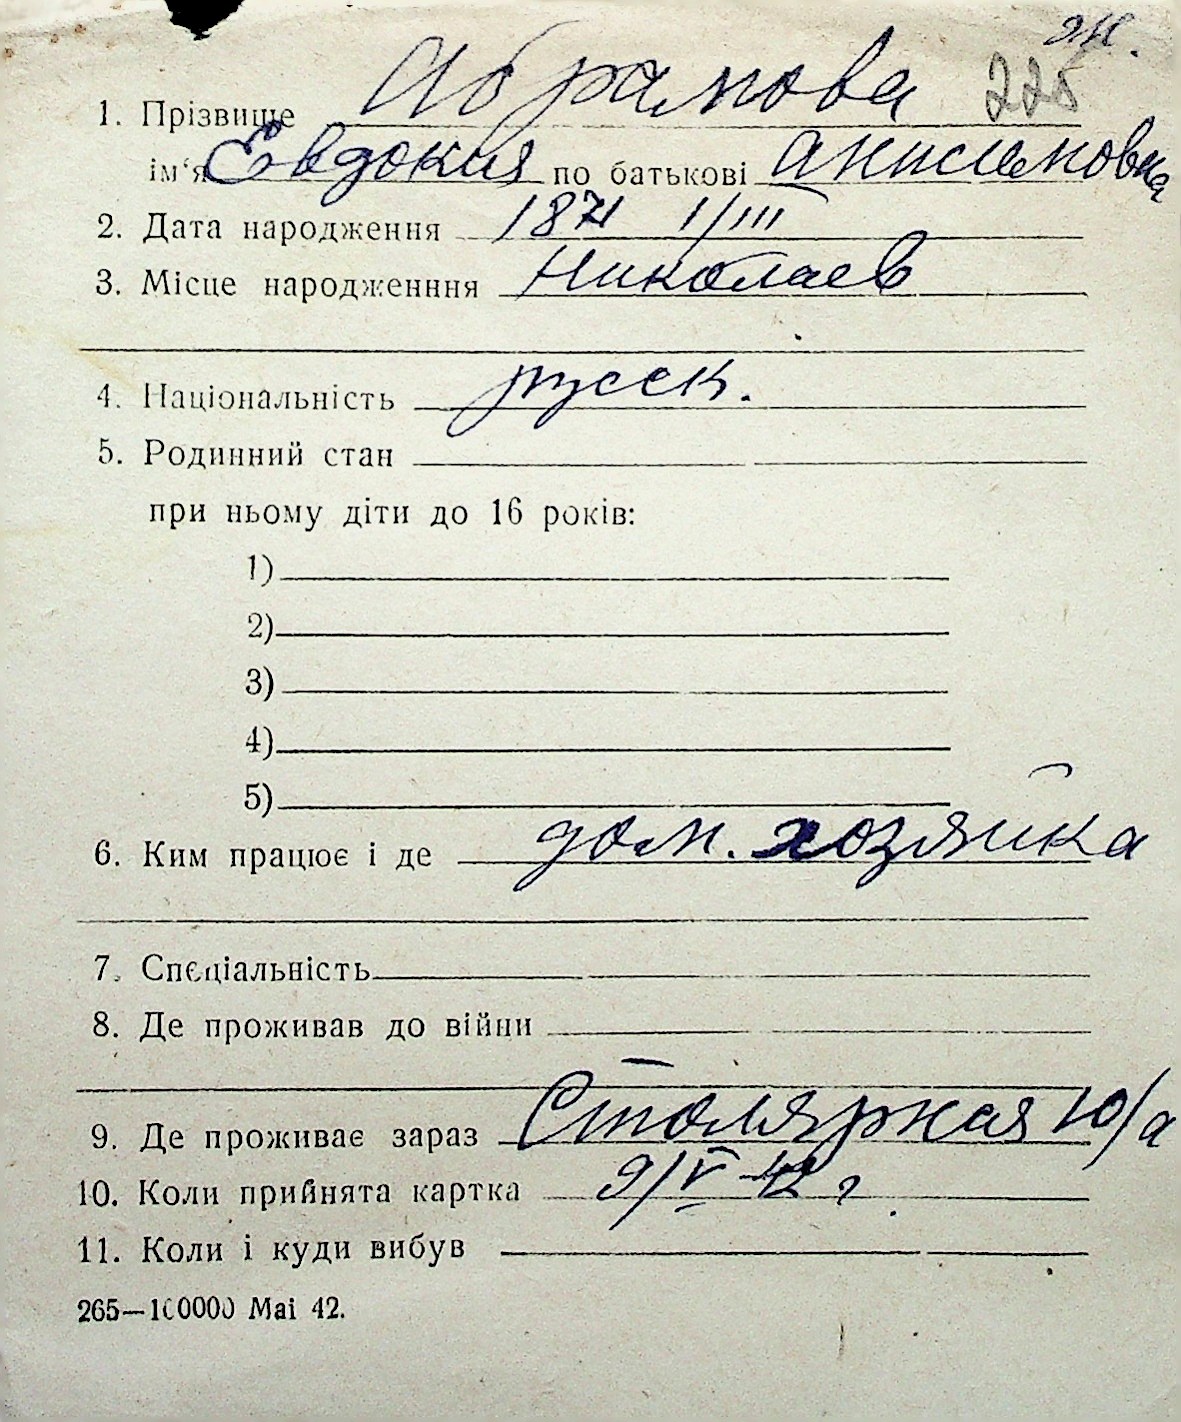 ж.
1. Прізвище Абрамова 225
ім'я Евдокия по батькові Анисимовна
2. Дата народження 1871 1/III
3. Місце народженння Николаев
4. Національність русск.
5. Родинний стан
при ньому діти до 16 років:
1)
2)
3)
4)
5)
6. Ким працює і де дом. хозяйка
7. Спєціальність
8. Де проживав до війни
9. Де проживає зараз Столярная 10/а
10. Коли прийнята картка 9/V 42 г.
11. Коли і куди вибув
265—100000 Mai 42.